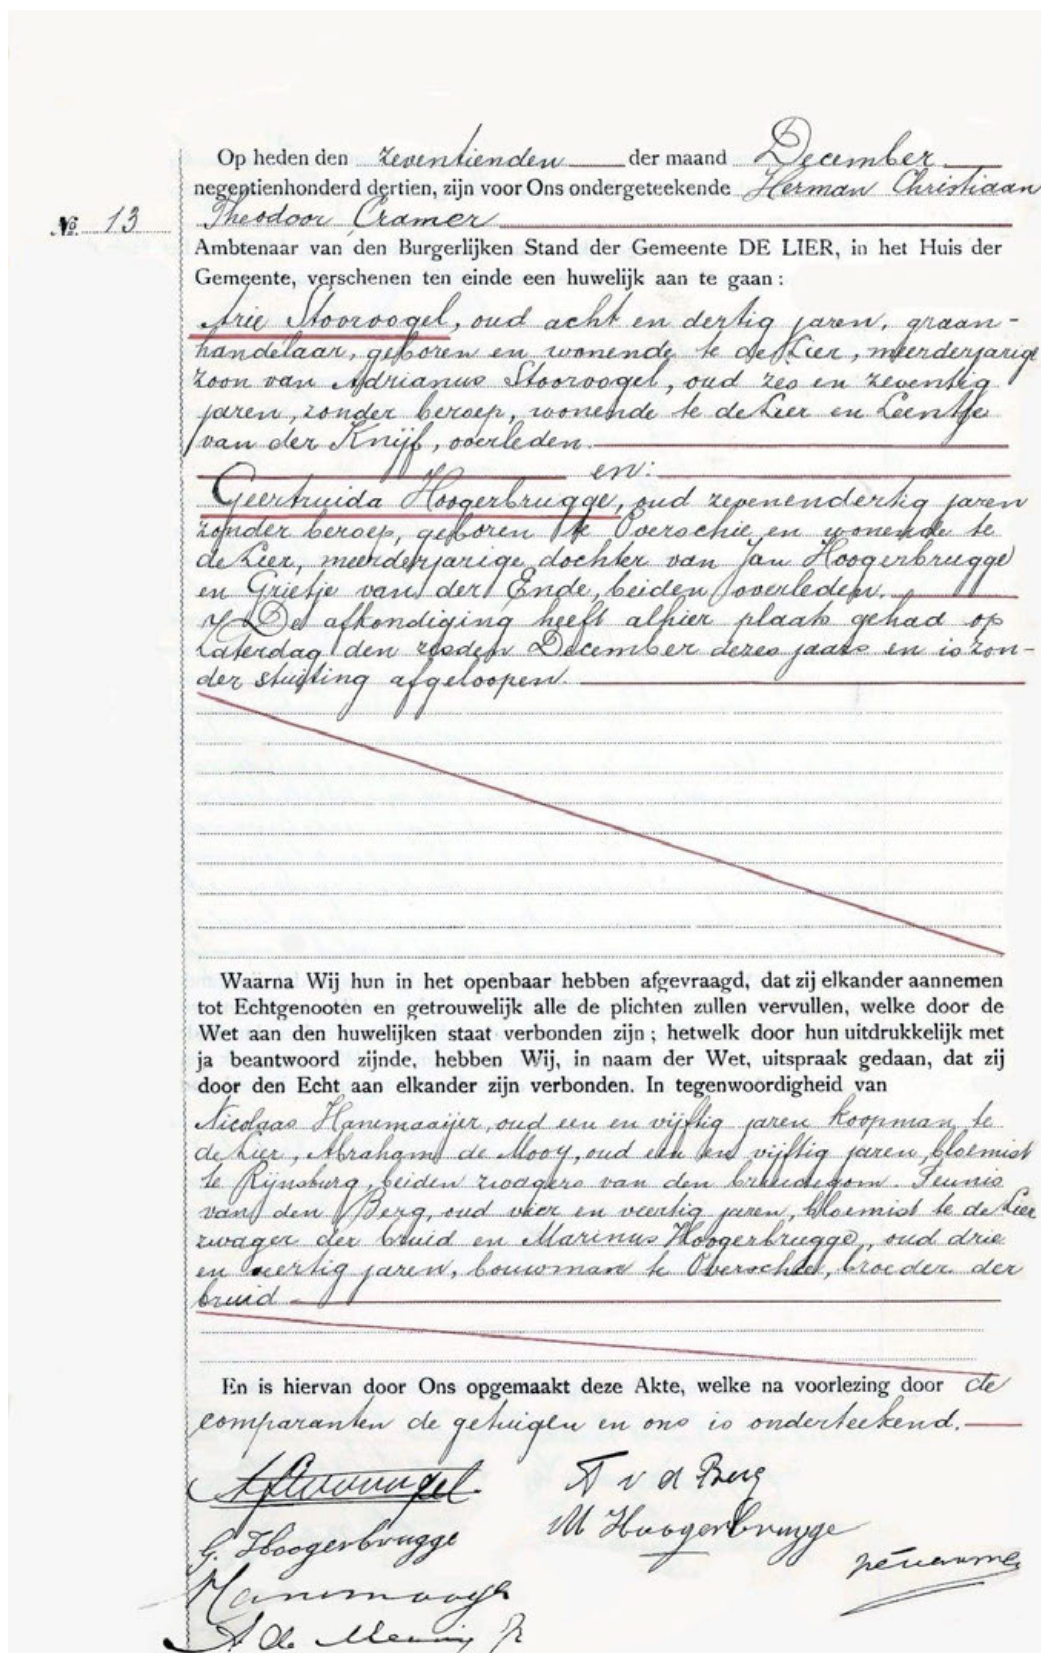 Op heden den zeventienden der maand December
negentienhonderd dertien, zijn voor Ons ondergeteekende Herman Christiaan
No. 13 Theodoor Cramer
Ambtenaar van den Burgerlijken Stand der Gemeente DE LIER, in het Huis der
Gemeente, verschenen ten einde een huwelijk aan te gaan :
Arie Stoorvogel, oud acht en dertig jaren, graan-
handelaar, geboren en wonende te de Lier, meerderjarige
zoon van Adrianus Stoorvogel, oud zes en zeventig
jaren, zonder beroep, wonende te de Lier en Leentje
van der Knijf, overleden.
en:
Geertruida Hoogerbrugge, oud zevenendertig jaren
zonder beroep, geboren te Overschie en wonende te
de Lier, meerderjarige dochter van Jan Hoogerbrugge
en Grietje van der Ende, beiden overleden.
De afkondiging heeft alhier plaats gehad op
Zaterdag den zesden December dezes jaars en is zon-
der stuiting afgeloopen.
Waarna Wij hun in het openbaar hebben afgevraagd, dat zij elkander aannemen
tot Echtgenooten en getrouwelijk alle de plichten zullen vervullen, welke door de
Wet aan den huwelijken staat verbonden zijn ; hetwelk door hun uitdrukkelijk met
ja beantwoord zijnde, hebben Wij, in naam der Wet, uitspraak gedaan, dat zij
door den Echt aan elkander zijn verbonden. In tegenwoordigheid van
Nicolaas Hanemaaijer, oud een en vijftig jaren koopman, te
de Lier, Abraham de Mooy, oud een en vijftig jaren, bloemist
te Rijnsburg, beiden zwagers van den bruidegom. Teunis
van den Berg, oud vier en veertig jaren, bloemist te de Lier
zwager der bruid en Marinus Hoogerbrugge, oud drie
en veertig jaren, bouwman te Overschie, broeder der
bruid
En is hiervan door Ons opgemaakt deze Akte, welke na voorlezing door de
comparanten de getuigen en ons is onderteekend.
A Stoorvogel. A v d Berg
G. Hoogerbrugge M Hoogerbrugge
A de